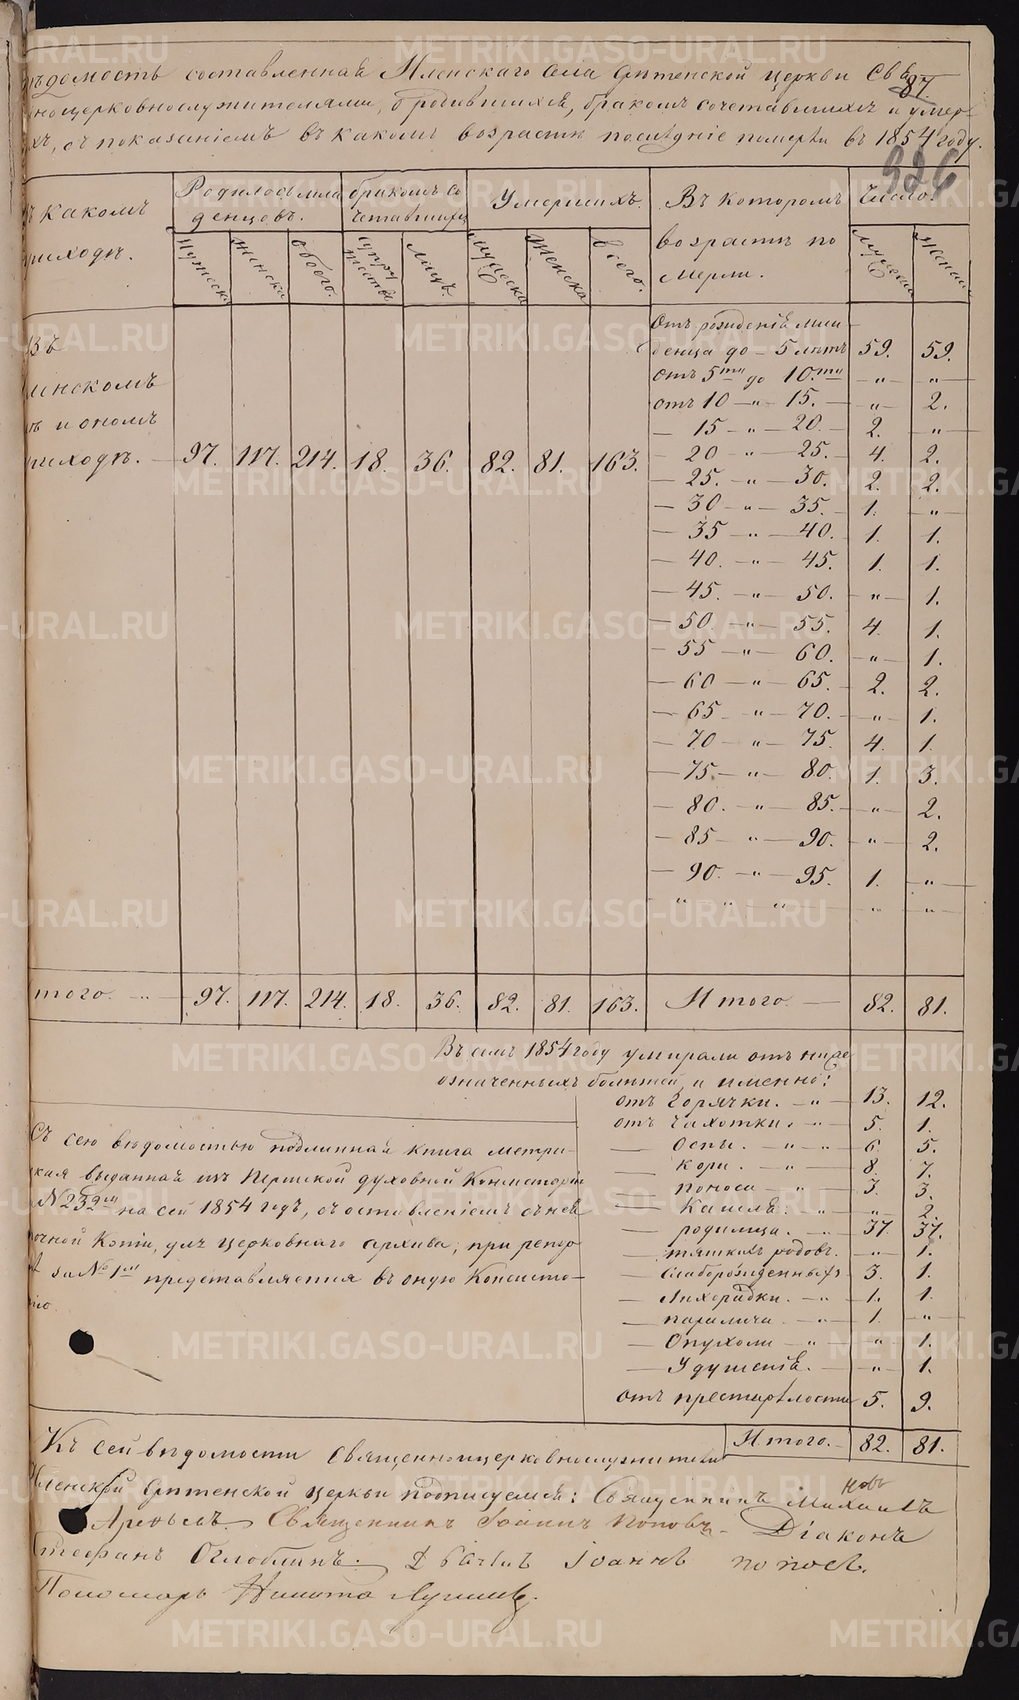 ѣдомость составленная Иленскаго села Срѣтенской церкви Свя
87.
ноцерковнослужителями, о родившихся, бракомъ сочетавшихся и умер
хъ, съ показаніемъ въ какомъ возрастѣ послѣдніе померли въ 1854 году.
926
ъ какомъ
риходѣ.
Родилось мла
денцовъ.
бракомъ со
четавшихся
Умершихъ.
Въ которомъ
возрастѣ по
мерли.
Число.
Мужеска
Женска
Обоего.
Супру
жествъ
Лицъ.
Мужеска
Женска
Всего.
Мужеска
Женска
Въ
ленскомъ
ѣ и ономъ
риходѣ. — 97. 117. 214. 18. 36. 82. 81. 163.
Отъ рожденія мла
денца до — 5 лѣтъ 59. 59.
Отъ 5ти до 10.ти — „ — — „ —
отъ 10 — „ — 15. — — „ — 2.
— 15 — „ — 20. — 2. — „ —
— 20 — „ — 25. — 4. 2.
— 25. — „ — 30. 2. 2.
— 30 — „ — 35. — 1. „
— 35 — „ — 40. 1. 1.
— 40. — „ — 45. 1. 1.
— 45. — „ — 50. — „ — 1.
— 50. — „ — 55. 4. 1.
— 55 — „ — 60. — „ — 1.
— 60 — „ — 65. — 2. 2.
— 65 — „ — 70. — — „ — 1.
— 70 — „ — 75. 4. 1.
— 75. — „ — 80. 1. 3.
— 80. — „ — 85. — — „ — 2.
— 85 — „ — 90. — „ — 2.
— 90. — „ — 95. 1. — „ —
„ „ „ „ „
того. — „ — 97. 117. 214. 18. 36. 82. 81. 163. Итого. — 82. 81.
Въ семъ 1854 году умирали отъ ниже
означенныхъ болѣзней, а именно:
отъ Горячки. — „ — 13. 12.
отъ Чахотки. — „ — 5. 1.
— Оспы. — „ — „ — 6. 5.
— Кори. — „ 8. 7.
— поноса — „ — 3. 3.
— Кашля. „ „ 2.
— родимца. — „ — 37. 37.
— тяжкихъ родовъ. — „ — 1.
— Слаборожденныхъ 3. 1.
— Лихорадки. — „ — 1. 1.
— паралича. — „ — 1. — „ —
— Опухоли — „ — „ 1.
— Удушенія. — — „ — 1.
отъ престарѣлости 5. 9.
Итого. — 82. 81.
Съ сею вѣдомостью подлинная книга метри-
ская выданная изъ Пермской духовной Консисторіи
№ 232мъ на сей 1854 годъ, съ оставленіемъ съ нея
очной Копіи, для церковнаго архива, при репор
за № 1мъ представляется въ оную Консисто-
рію.
Къ сей вѣдомости священноцерковнослужители
Иленской Срѣтенской церкви подписуемся: Священникъ Михаилъ
Священникъ Іоаннъ Поповъ — Діаконъ
Стефанъ Оглоблинъ. Дьячекъ Іоаннъ Поповъ.
Пономарь Никита
METRIKI.GASO-URAL.RU